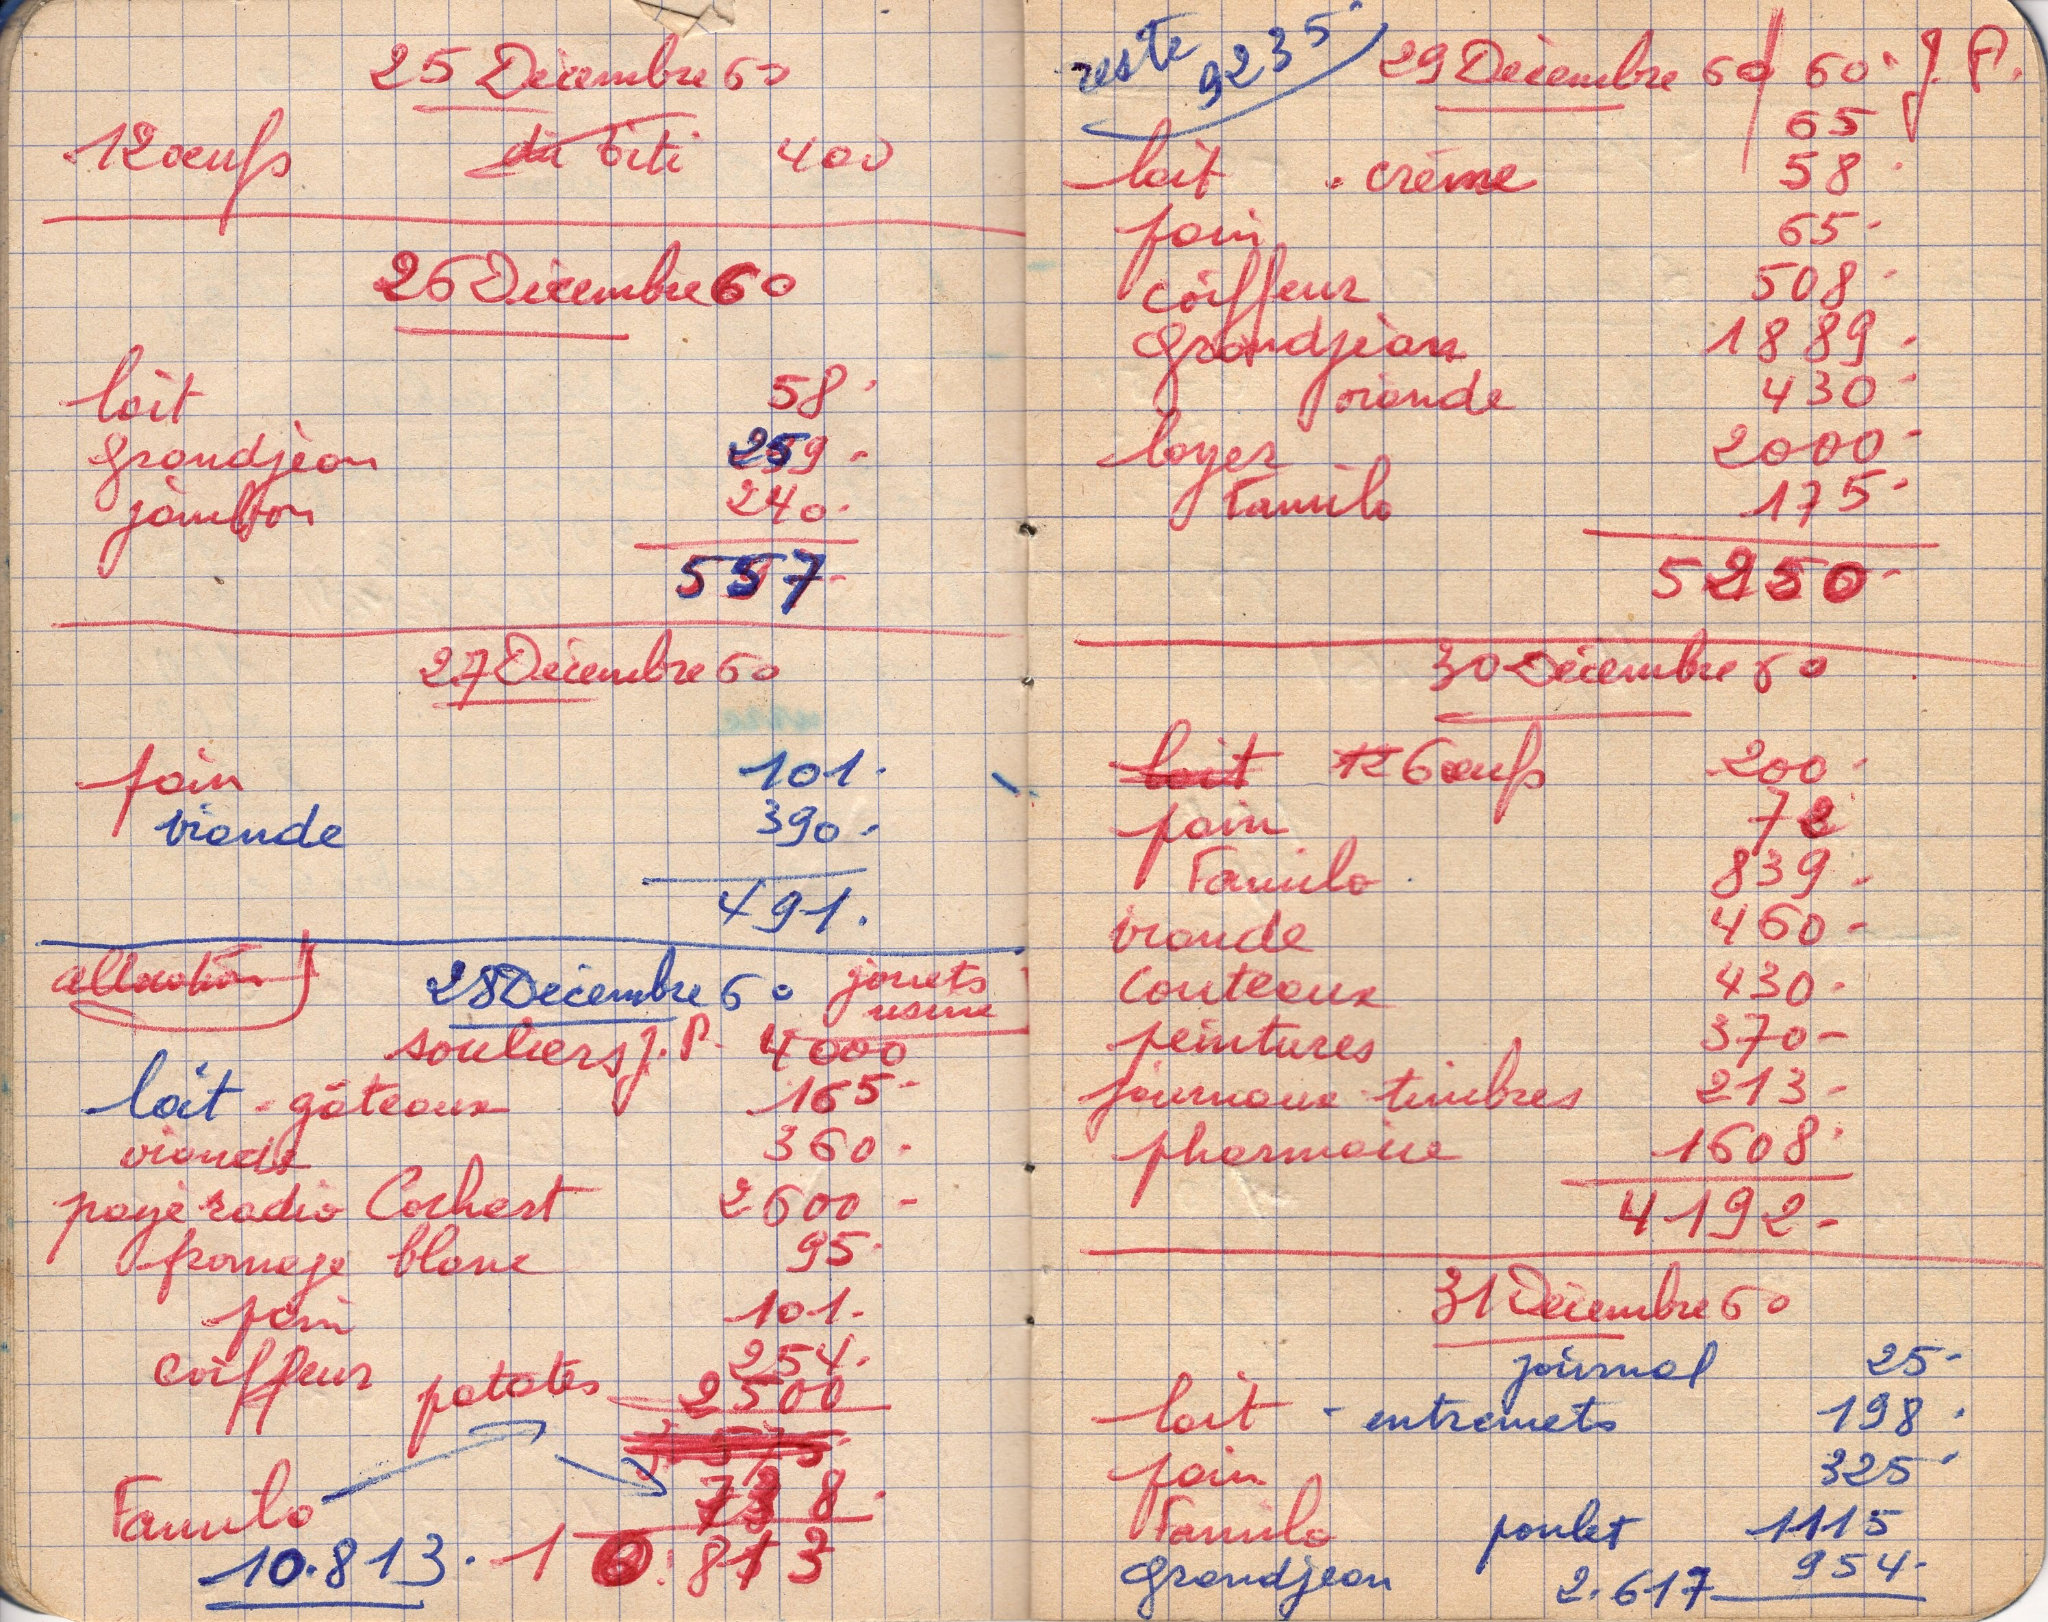 25 Décembre 60
12 œufs du titi 400
26 Décembre 60
lait 58
Grandjean 259
jambon 240
557
27 Décembre 60
pain 101
viande 390
491
allocation
28 Décembre 60 jouets
usine
souliers J.P. 4000
lait - gâteaux 165
viande 360
payé radio Cochart 2600
fromage blanc 95
pain 101
coiffeur 254
patates 2500
Familo 738
10.813. 10.813
reste 9235
29 Décembre 60 60 J.P.
65
lait - crème 58
pain 65
coiffeur 508
Grandjean 1889
viande 430
loyer 2000
Familo 175
5250
30 Décembre 60
lait 12 6 œufs 200
pain 72
Familo 839
viande 460
couteaux 430
peintures 370
journaux timbres 213
pharmacie 1608
4192
31 Décembre 60
journal 25
lait - entremets 198
pain 325
Familo poulet 1115
Grandjean 954
2.617